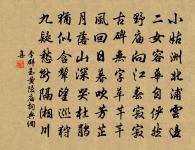 小姑洲北浦雲邊
二女容華自儼然
野廟向江春寂寂
古碑無字草芊芊
風回日暮吹芳芷
月落山深哭杜鵑
猶似含顰望巡狩
九疑愁斷隔湘川
李群玉黃陵廟詞